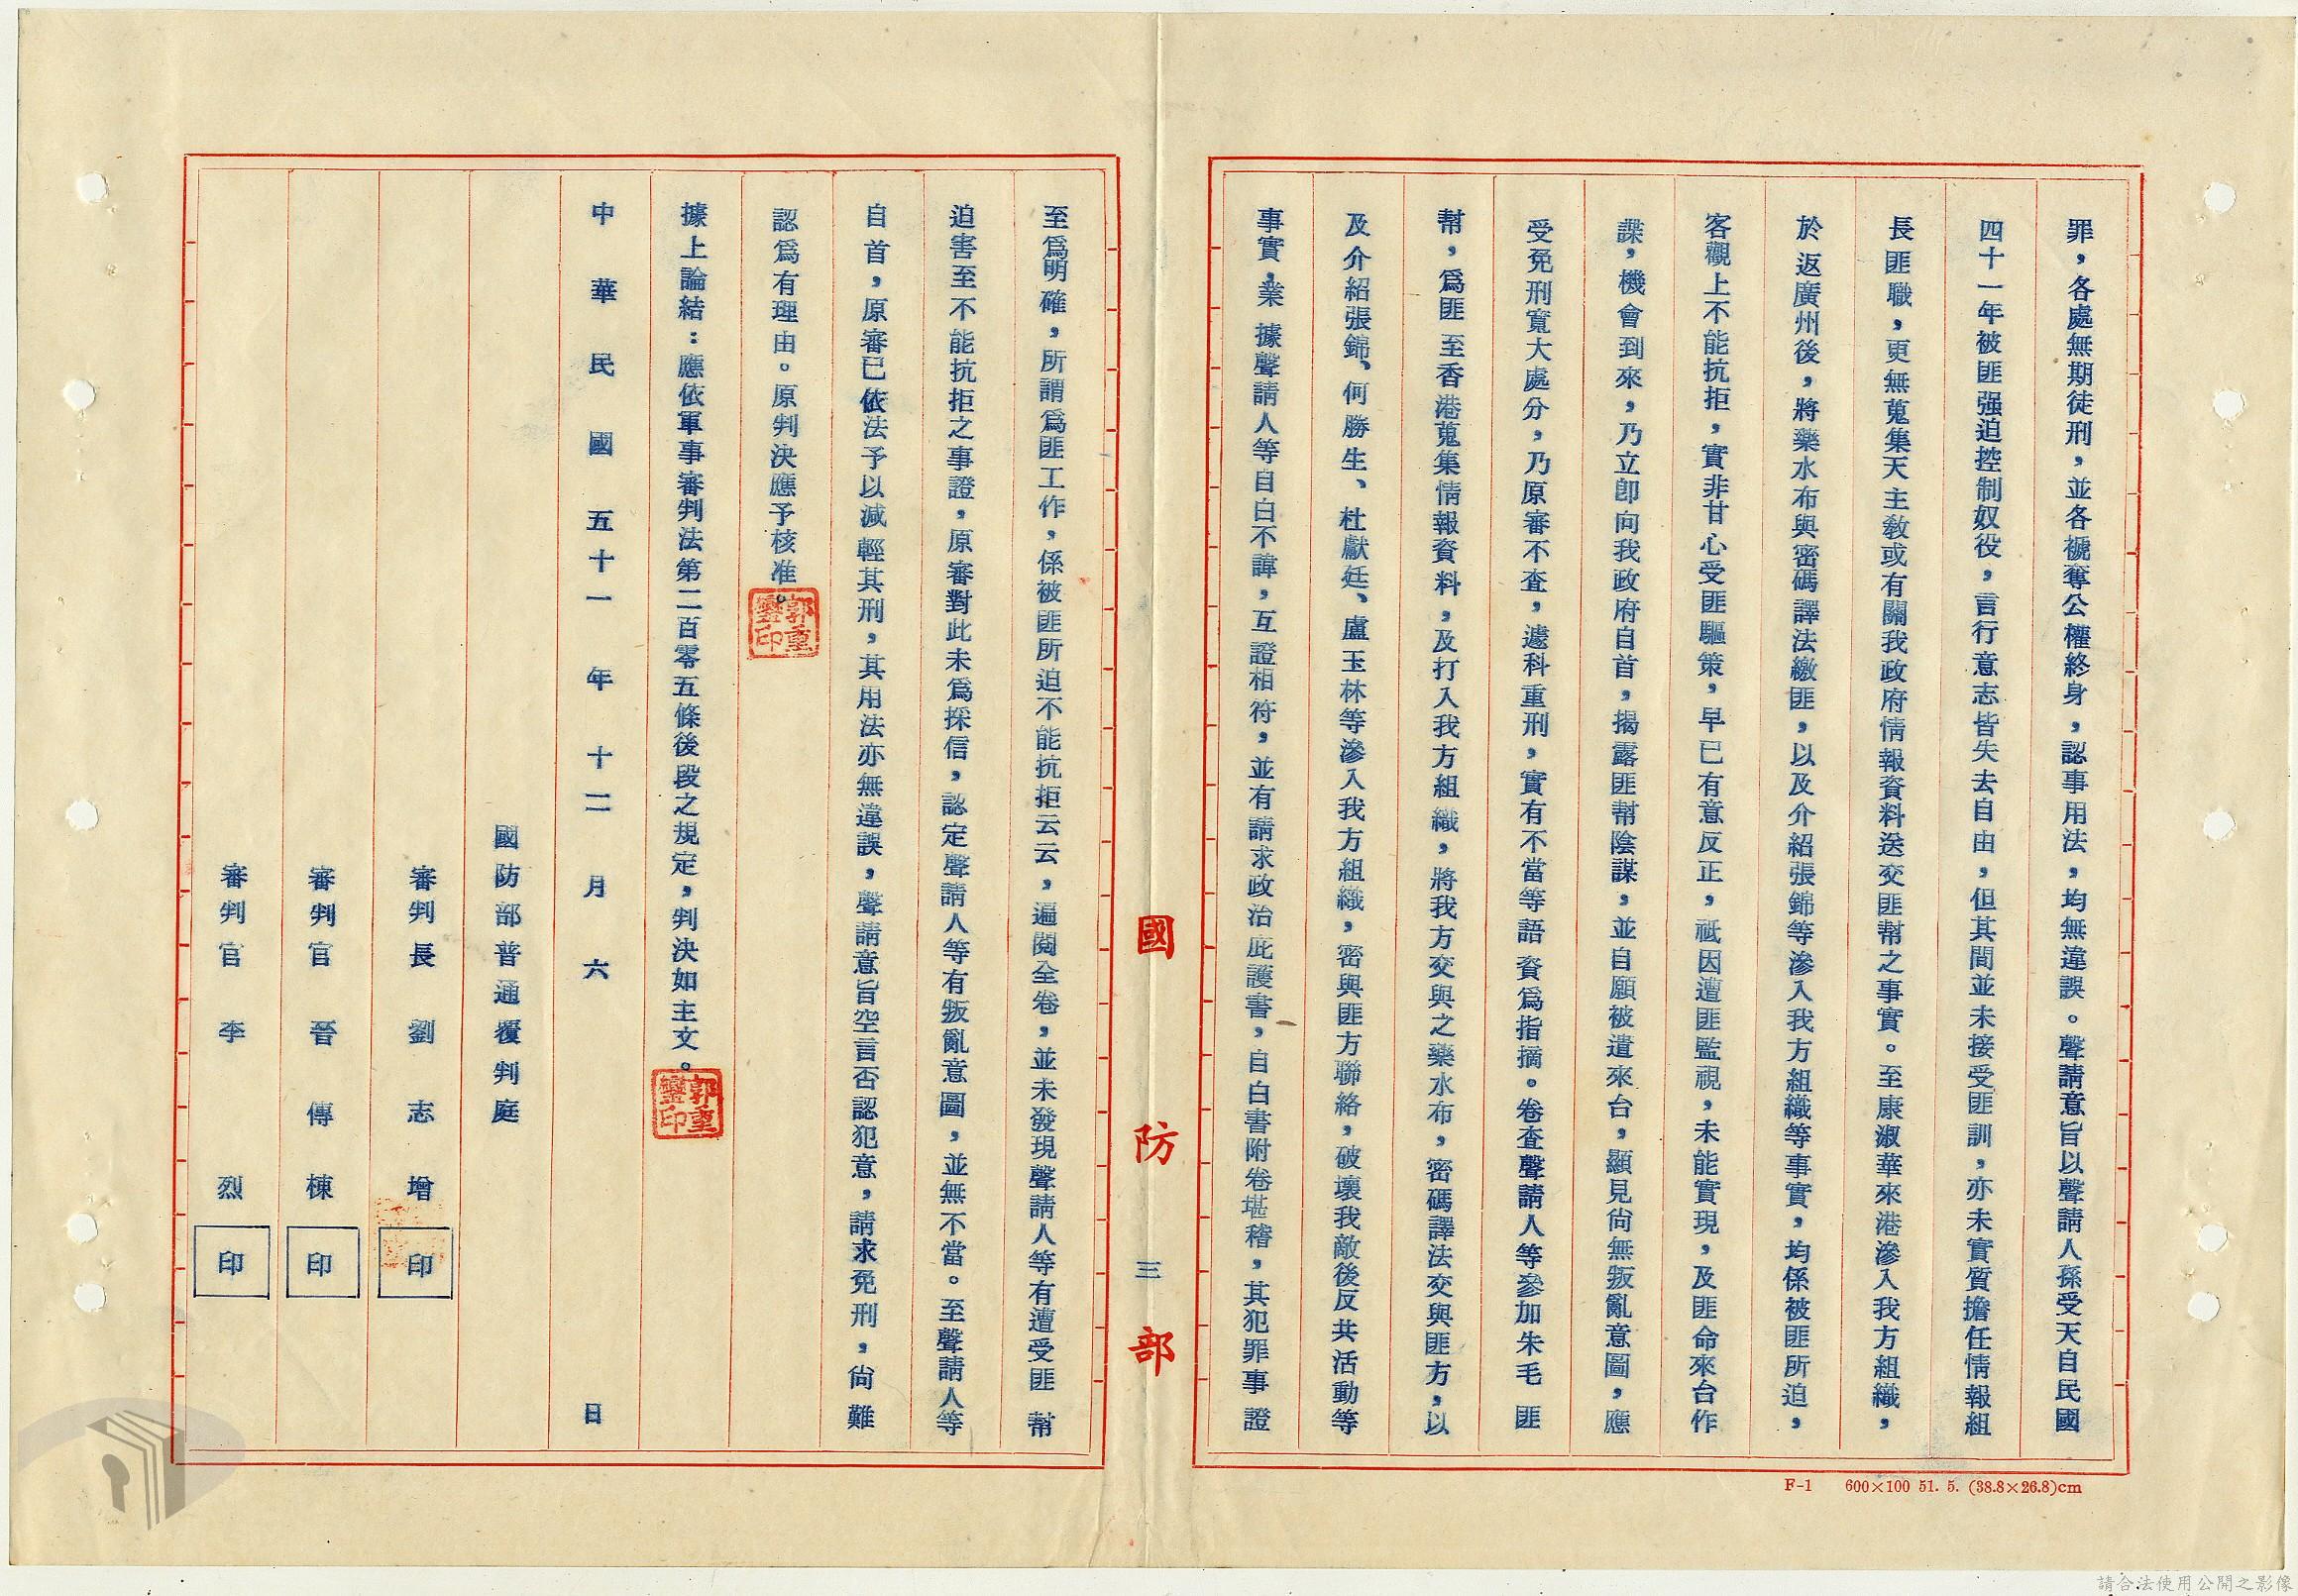 罪，各處無期徒刑，並各褫奪公權終身，認事用法，均無違誤。聲請意旨以聲請人孫受天自民國
四十一年被匪强迫控制奴役，言行意志皆失去自由，但其間並未接受匪訓，亦未實質擔任情報組
長匪職，更無蒐集天主教或有關我政府情報資料送交匪幫之事實。至康淑華來港滲入我方組織，
於返廣州後，將藥水布與密碼譯法繳匪，以及介紹張錦等滲入我方組織等事實，均係被匪所迫，
客觀上不能抗拒，實非甘心受匪驅策，早已有意反正，祗因遭匪監視，未能實現，及匪命來台作
諜，機會到來，乃立卽向我政府自首，揭露匪幫陰謀，並自願被遣來台，顯見尙無叛亂意圖，應
受免刑寬大處分，乃原審不查，遽科重刑，實有不當等語資爲指摘。卷査聲請人等參加朱毛匪
幫，爲匪至香港蒐集情報資料，及打入我方組織，將我方交與之藥水布，密碼譯法交與匪方，以
及介紹張錦、何勝生、杜獻廷、盧玉林等滲入我方組織，密與匪方聯絡，破壞我敵後反共活動等
事實，業據聲請人等自白不諱，互證相符，並有請求政治庇護書，自白書附卷堪稽，其犯罪事證
國防部
三
至爲明確，所謂爲匪工作，係被匪所迫不能抗拒云云，遍閱全卷，並未發現聲請人等有遭受匪幫
迫害至不能抗拒之事證，原審對此未爲採信，認定聲請人等有叛亂意圖，並無不當。至聲請人等
自首，原審已依法予以減輕其刑，其用法亦無違誤，聲請意旨空言否認犯意，請求免刑，尙難
認爲有理由。原判決應予核准。
郭重璽印
據上論結：應依軍事審判法第二百零五條後段之規定，判決如主文。
郭重璽印
中華民國五十一年十二月六日
國防部普通覆判庭
審判長劉志增 印
審判官晉傳棟 印
審判官李烈 印
F-1 600×100 51. 5. (38.8×26.8)cm
請合法使用公開之影像